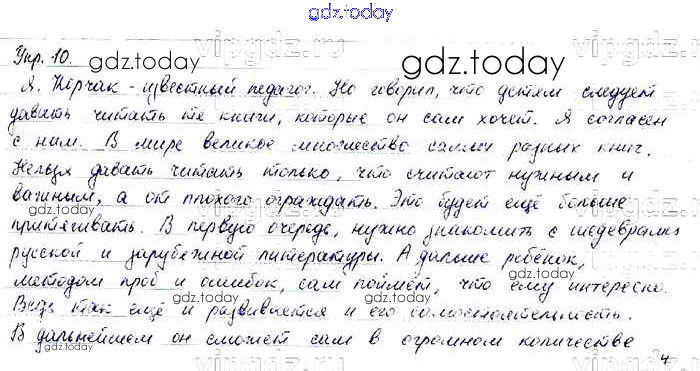 gdz.today
Упр. 10. gdz.today gdz.today
Я. Корчак - известный педагог. Но говорил, что детям следует
давать читать те книги, которые он сам хочет. Я согласен
с ним. В мире великое множество самых разных книг.
Нельзя давать читать только, что считают нужным и
важным, а от плохого ограждать. Это будет ещё больше
gdz.today gdz.today
притягивать. В первую очередь, нужно знакомить с шедеврами
русской и зарубежной литературы. А дальше ребёнок,
методом проб и ошибок, сам поймёт, что ему интересно.
gdz.today gdz.today
Ведь так ещё и развивается и его самостоятельность.
В дальнейшем он сможет сам в огромном количестве
gdz.today gdz.today
4